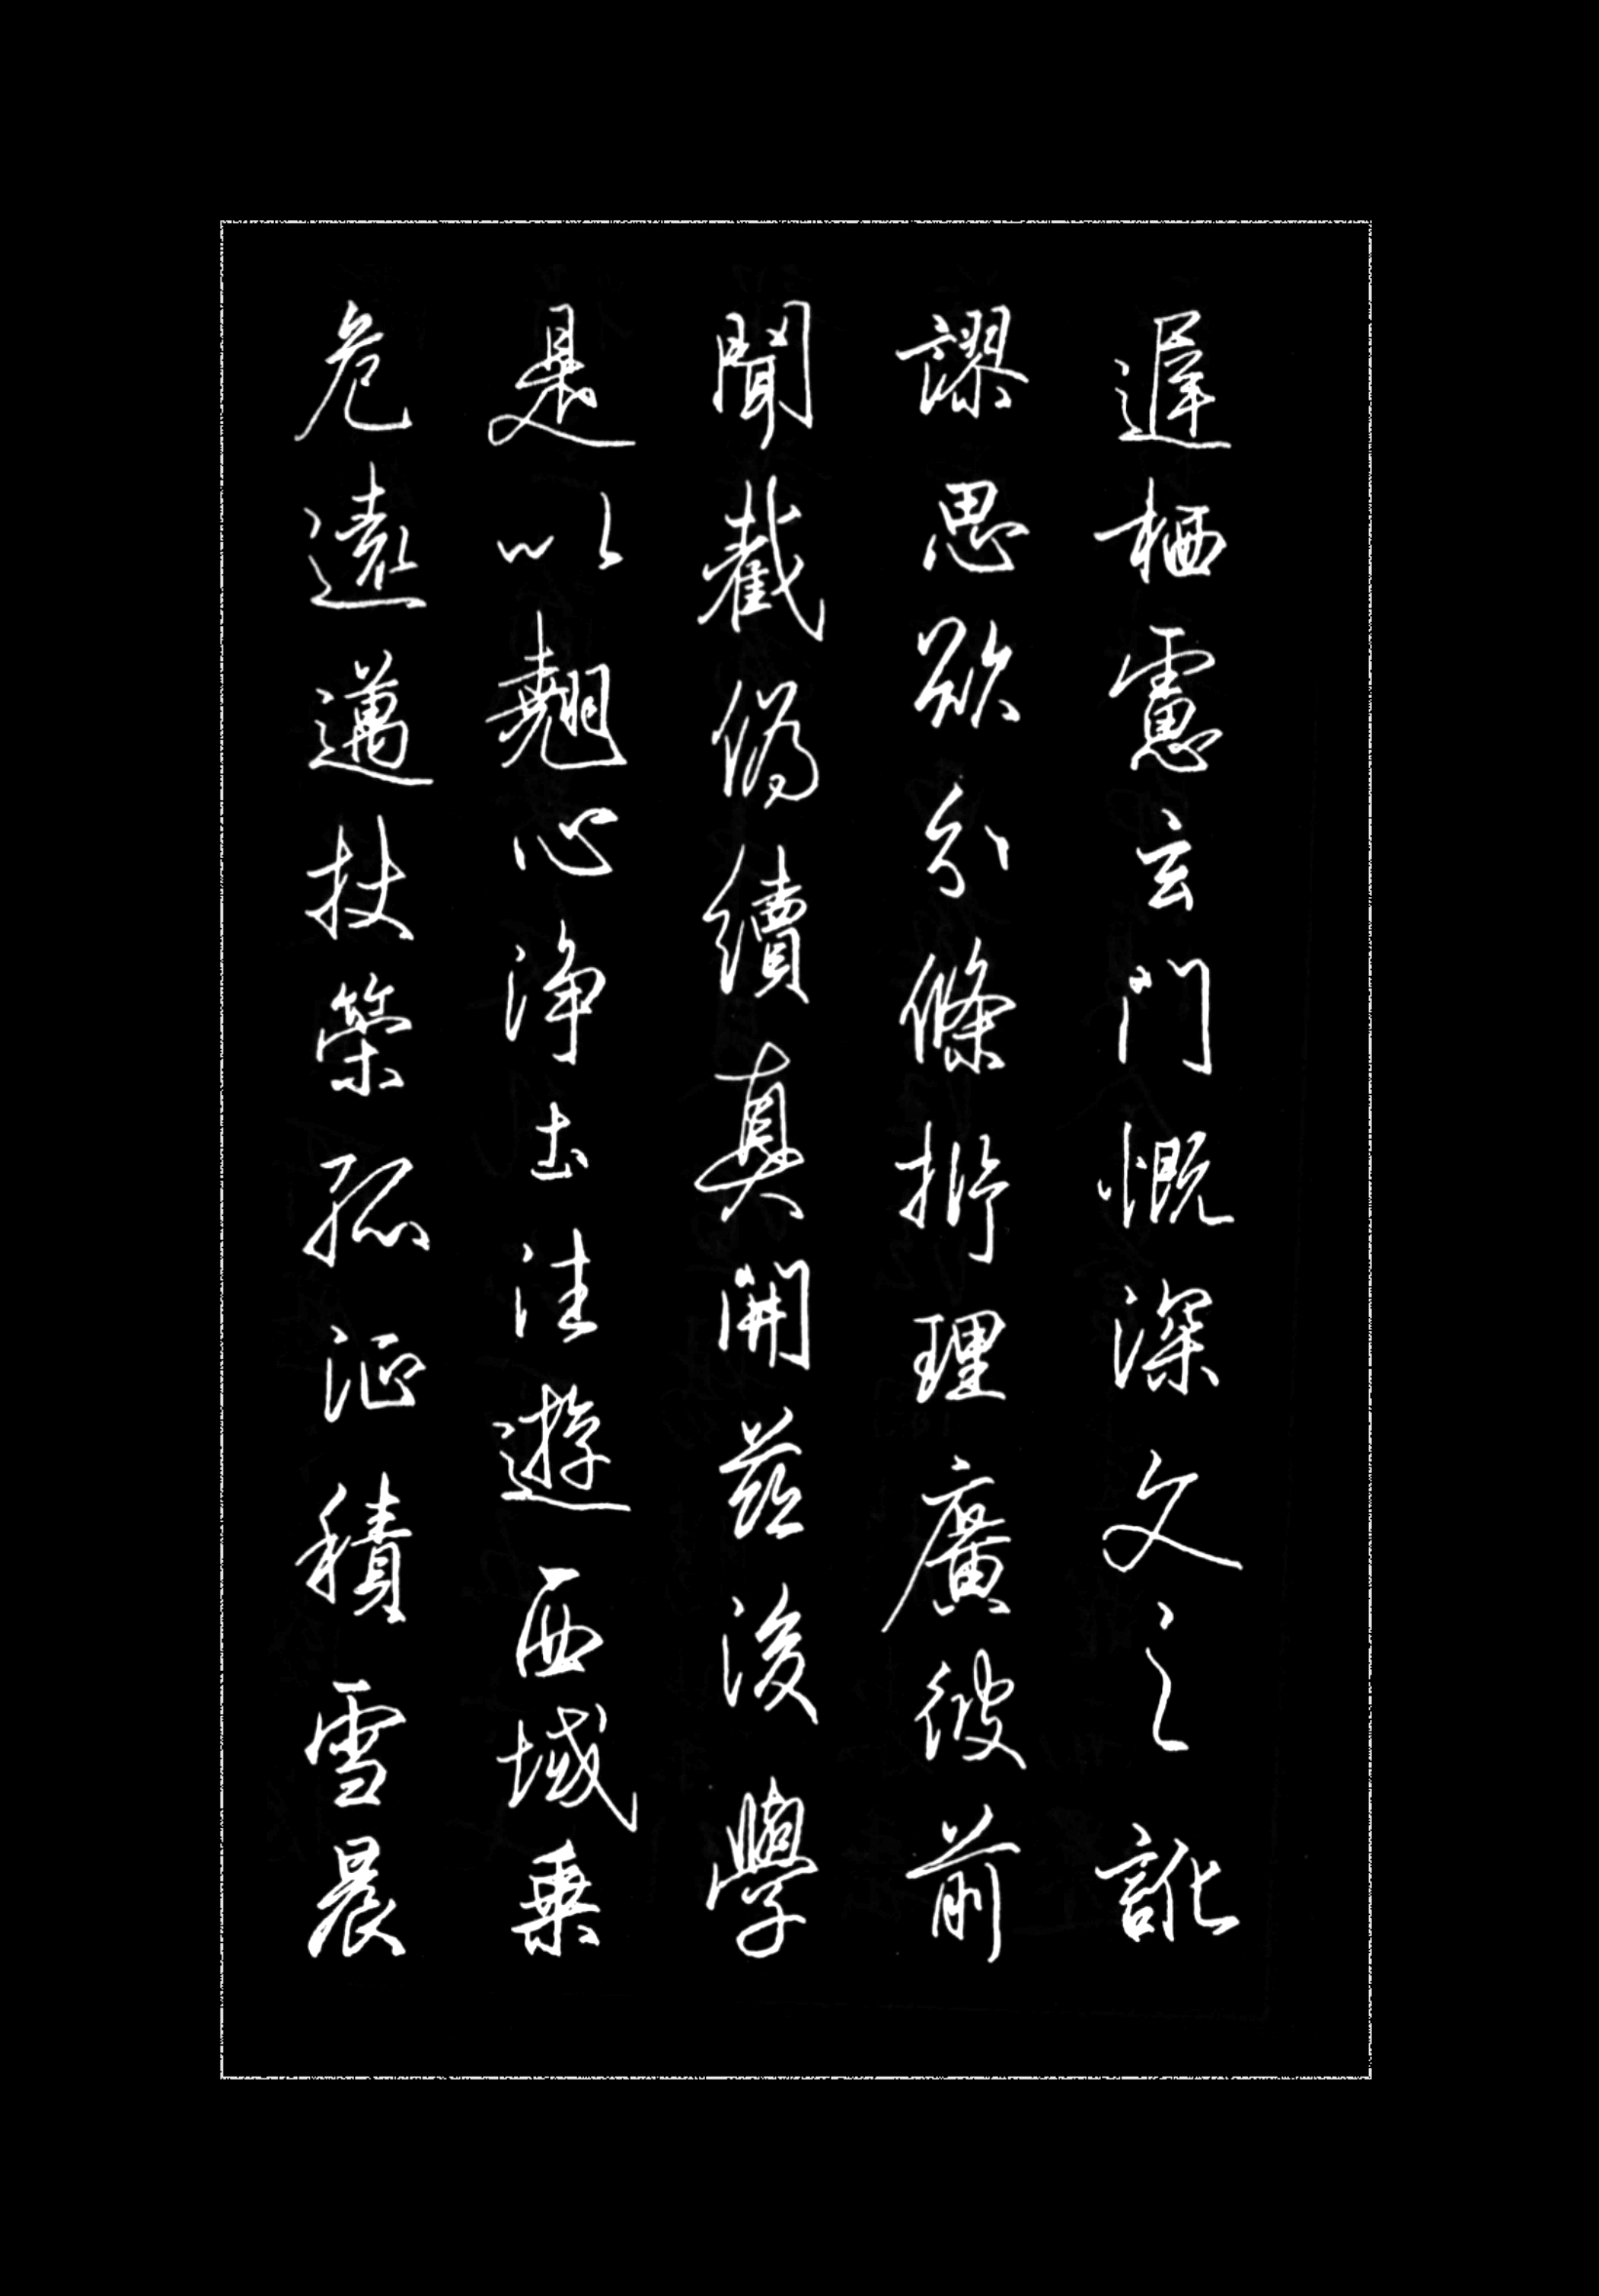 遲栖慮玄門慨深文之訛
謬思欲分條析理廣彼前
聞截偽續真開茲後學
是以翹心淨土法遊西域乘
危遠邁杖策孤征積雪晨